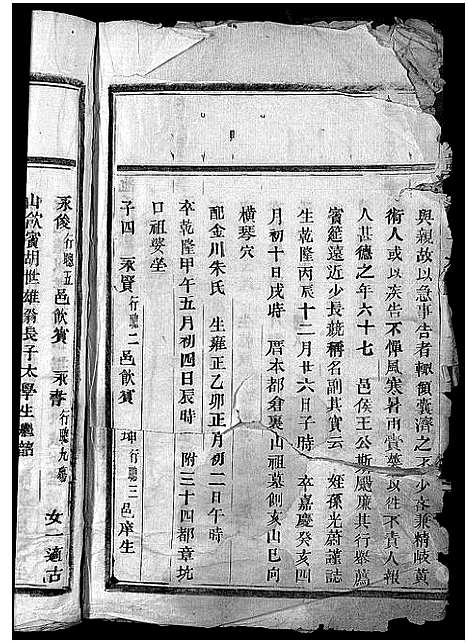 與親故以急事告者輒傾囊濟之不少吝兼精岐黃
術人或以疾告不憚風寒暑雨賞藥以往不責人報
人甚德之年六十七　邑侯王公斯颺廉其行舉薦
賓筵遠近少長競稱名副其實云　姪孫光蔚謹誌
生乾隆丙辰十二月廿六日子時　卒嘉慶癸亥四
月初十日戌時　厝本都倉裏山祖墓側亥山巳向
橫琴穴
配金川朱氏　生雍正乙卯正月初二日午時
卒乾隆甲午五月初四日辰時　附三十四都章坑
口祖塋塋
子四　永賢行聰二邑飲賓　坤行聰三邑庠生
永俊行聰五邑飲賓　永青行聰九殤
女一適古
山飲賓胡世雄翁長子太學生